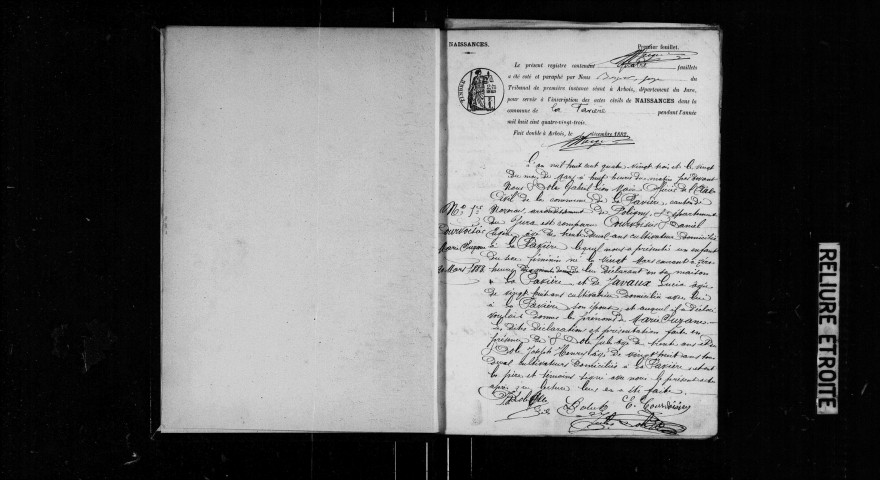 NAISSANCES.
Premier feuillet.
Le présent registre contenant quatre feuillets
a été coté et paraphé par Nous juge du
Tribunal de première instance séant à Arbois, département du Jura,
pour servir à l'inscription des actes civils de NAISSANCES dans la
commune de La Favière pendant l'année
mil huit cent quatre-vingt-trois.
Fait double à Arbois, le décembre 1882.
L'an mil huit cent quatre vingt trois et le vingt
du mois de Mars à huit heures du matin par devant
Nous Maire officier de l'État
Civil de la commune de la Favière, canton de
Nozeroy, arrondissement de Poligny, département
du Jura est comparu Courvoisier Daniel
âgé de trente deux ans cultivateur domicilié
à la Favière lequel nous a présenté un enfant
du sexe féminin né le vingt Mars courant à
heures du déclarant en sa maison
à La Favière et de Javaux Lucie âgée
de vingt huit ans cultivatrice domiciliée avec lui
à la Favière son épouse et auquel il a déclaré
vouloir donner le prénom de Marie Suzane
Les dites déclaration et présentation faites en
présence de Jules âgé de trente ans et de
Joseph Henry âgé de vingt huit ans tous
deux cultivateurs domiciliés à La Favière et ont
les père et témoins signé avec nous le présent acte
après que lecture leur en a été faite.
N° 1er
Courvoisier
Marie Suzane
20 Mars 1883
E. Courvoisier
RELIURE ETROITE